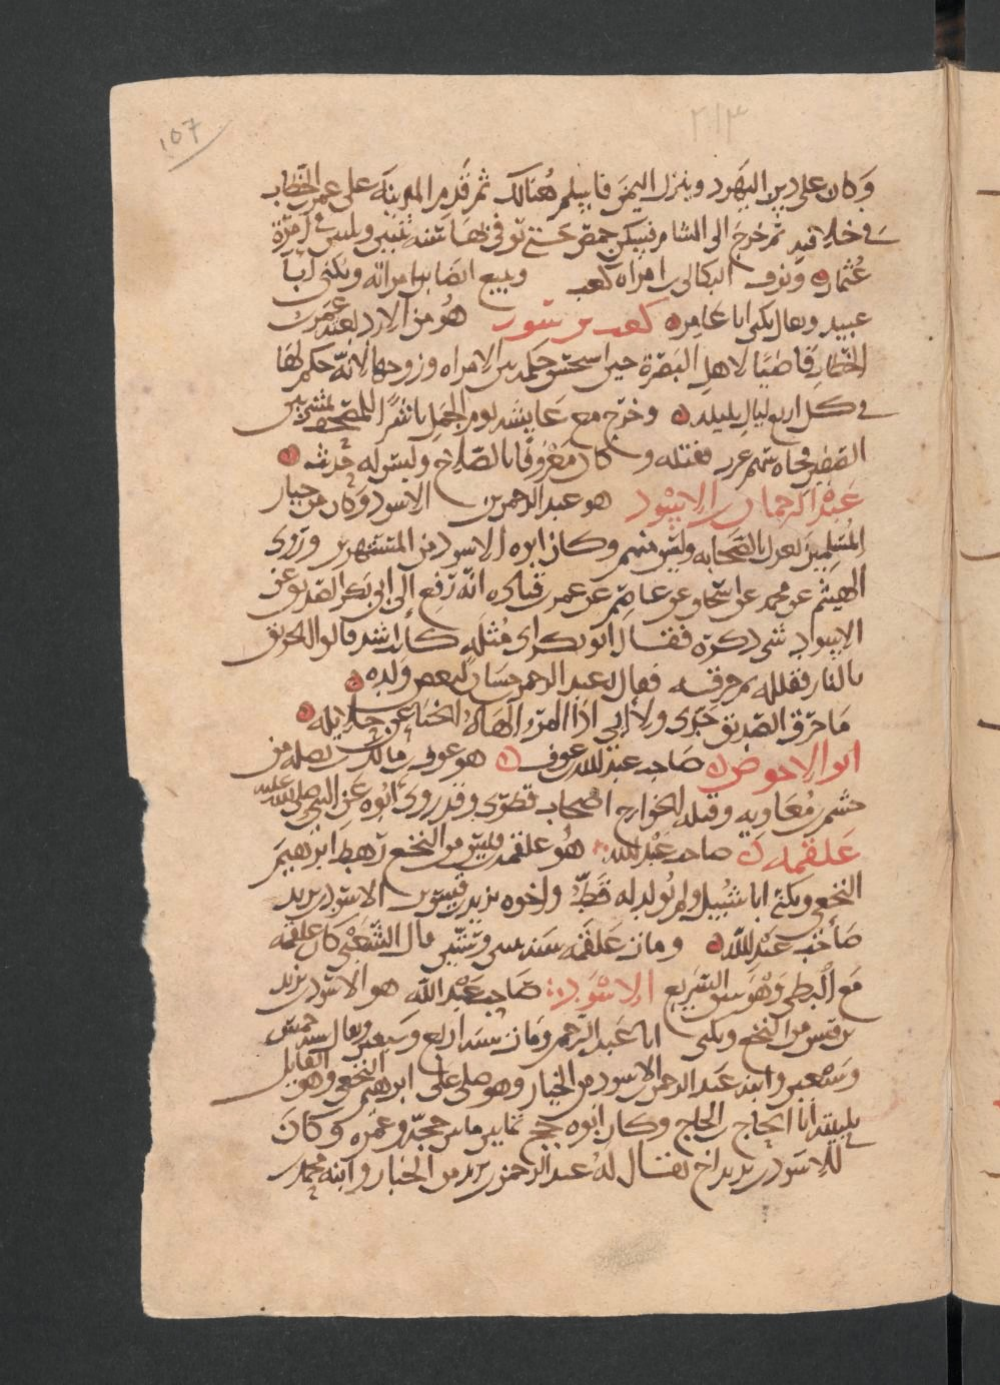 107
٢١٣
وكان على دين اليهود وينزل اليمن فاسلم هنالك ثم قدم المدينة على عمر الخطاب
في خلافته ثم خرج الى الشام فسكن حمص حتى توفي بها سنة ثنتين وثلثين في امرة
عثمان ونوف البكالى امراة كعب وتبيع ايضا ابن امراته ويكنى ابا
عبيد ويقال يكنى ابا عامر كعب بن سور هو من الازد بعثه عمر بن
الخطاب قاضيا لاهل البصرة حين استحسن حكمه بين الامراه وزوجها لانه حكم لها
في كل اربع ليال بليلة وخرج مع عايشه يوم الجمل ناشرا المصحف يمشي بين
الصفين فجاه سهم غرب فقتله وكان معروفا بالصلاح وليس له حديث
عبد الرحمان بن الاسود هو عبد الرحمن بن الاسود وكان من خيار
المسلمين يعدل بالصحابه وليس منهم وكان ابوه الاسود من المستهزين وروى
الهيثم عن محمد عن اسحاق عن عاصم عن عمر قتاده انه رفع الى ابي بكر الصديق عن
الاسود شي ذكره فقال ابو بكر اى مثلة كانت اشد قالوا الحريق
بالنار فقتله ثم حرقه فقال عبد الرحمن حسان لبعض ولده
ما حرق الصديق جدى ولا ابي اذا المرء الهاه الخنا عن جلايله
ابو الاحوص صاحب عبد الله عوف هو عوف مالك نضله من
جشم معاويه وقتله الخوارج اصحاب قطرى وقد روى ابوه عن النبي صلى الله عليه
علقمه صاحب عبد لله هو علقمه قيس من النخع رهط ابرهيم
النخعي ويكنى ابا شبيل ولم يولد له قط واخوه يزيد قيس الاسود يزيد
صاحب عبد لله ومات علقمه سنه ثنتين وستين قال الشعبي كان علقمه
مع البطي وهو يسبق السريع الاسود صاحب عبد الله هو الاسود يزيد
بن قيس من النخع ويكنى ابا عبد الرحمن ومات سنه اربع وسبعين ويقال سنه خمس
وسبعين وابنه عبد الرحمن الاسود من الخيار وهو صلى على ابرهيم النخعي وهو القايل
بلبيته انا الحاج بن الحاج وكان ابوه حج ثمانين ما بين حجه وعمره وكان
للاسود بن يزيد اخ يقال له عبد الرحمن يزيد من الخيار وابنه محمد